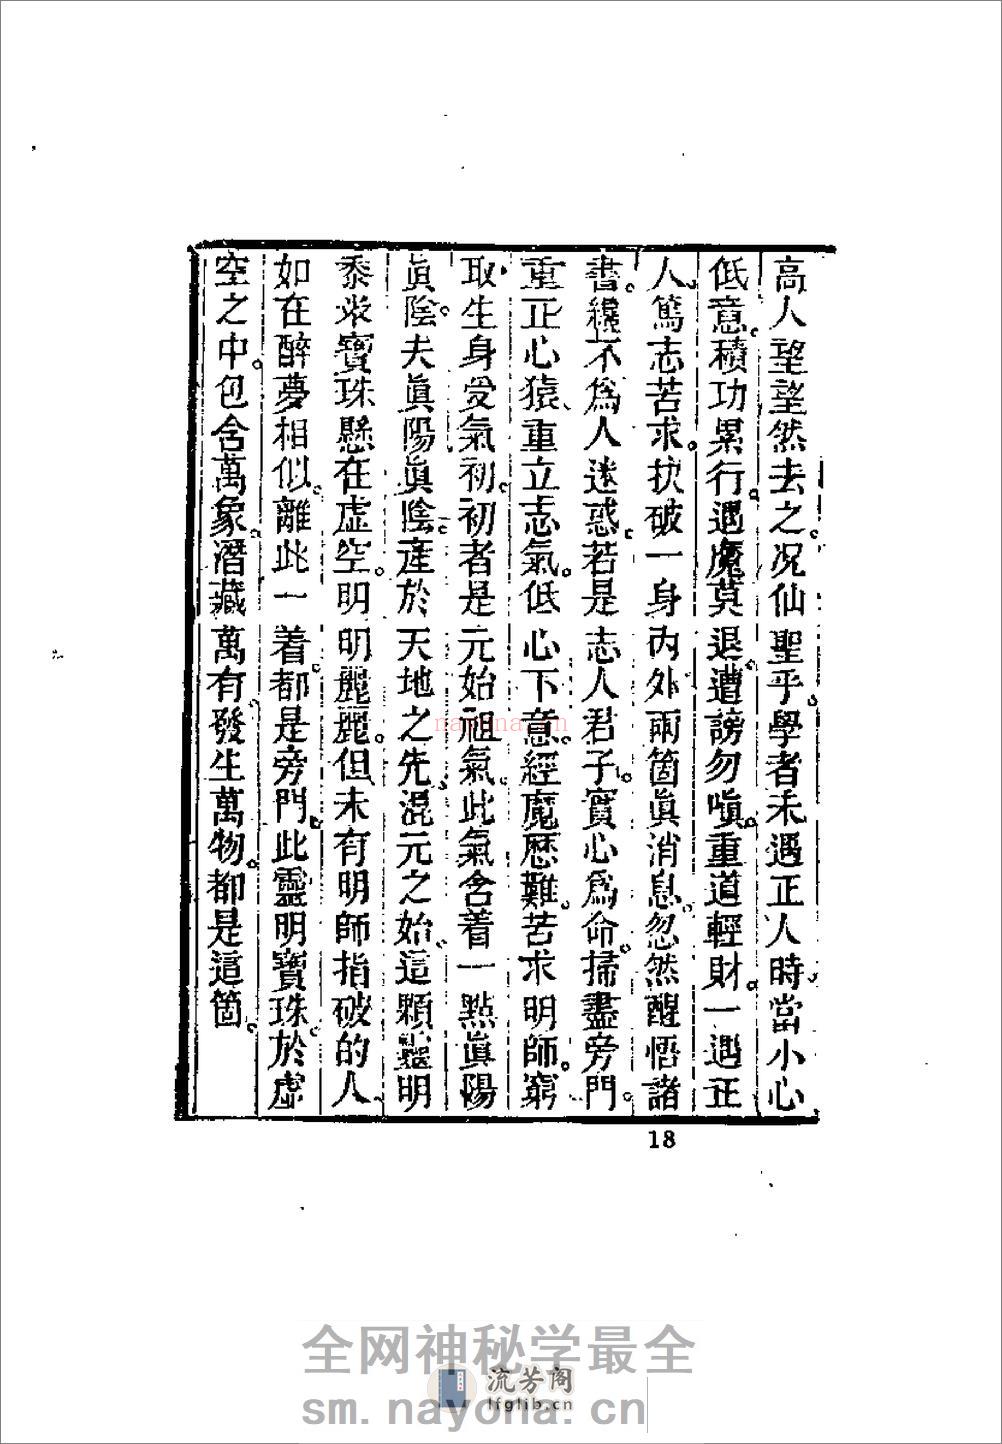 高人望望然去之。况仙聖乎。學者未遇正人時。當小心
低意。積功累行。遇魔莫退。遭謗勿嗔。重道輕財。一遇正
人。篤志苦求。抉破一身內外兩箇眞消息。忽然醒悟諸
書。纔不爲人迷惑。若是志人君子。實心爲命。掃盡旁門。
重正心猿、重立志氣。低心下意。經魔歷難。苦求明師。窮
取生身受氣初。初者是元始祖氣。此氣含着一點眞陽
眞陰。夫眞陽眞陰。產於天地之先、混元之始。這顆靈明
黍米寶珠。懸在虛空。明明麗麗。但未有明師指破的人、
如在醉夢相似。離此一着。都是旁門。此靈明寶珠。於虛
空之中。包含萬象。潛藏萬有。發生萬物。都是這箇。
18
nayona.cn
全网神秘学最全
流芳阁
lfglib.cn
sm.nayona.cn